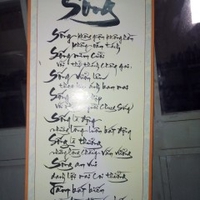 Sống
Sống không giận không hờn
không oán trách
Sống mỉm cười
với thử thách chông gai
Sống vươn lên
theo kịp ánh ban mai
Sống
với
Sống là động
nhưng lòng luôn bất động
Sống là thương
nhưng lòng chẳng vấn vương
Sống an vui
danh lợi mãi coi thường
Tâm bất biến